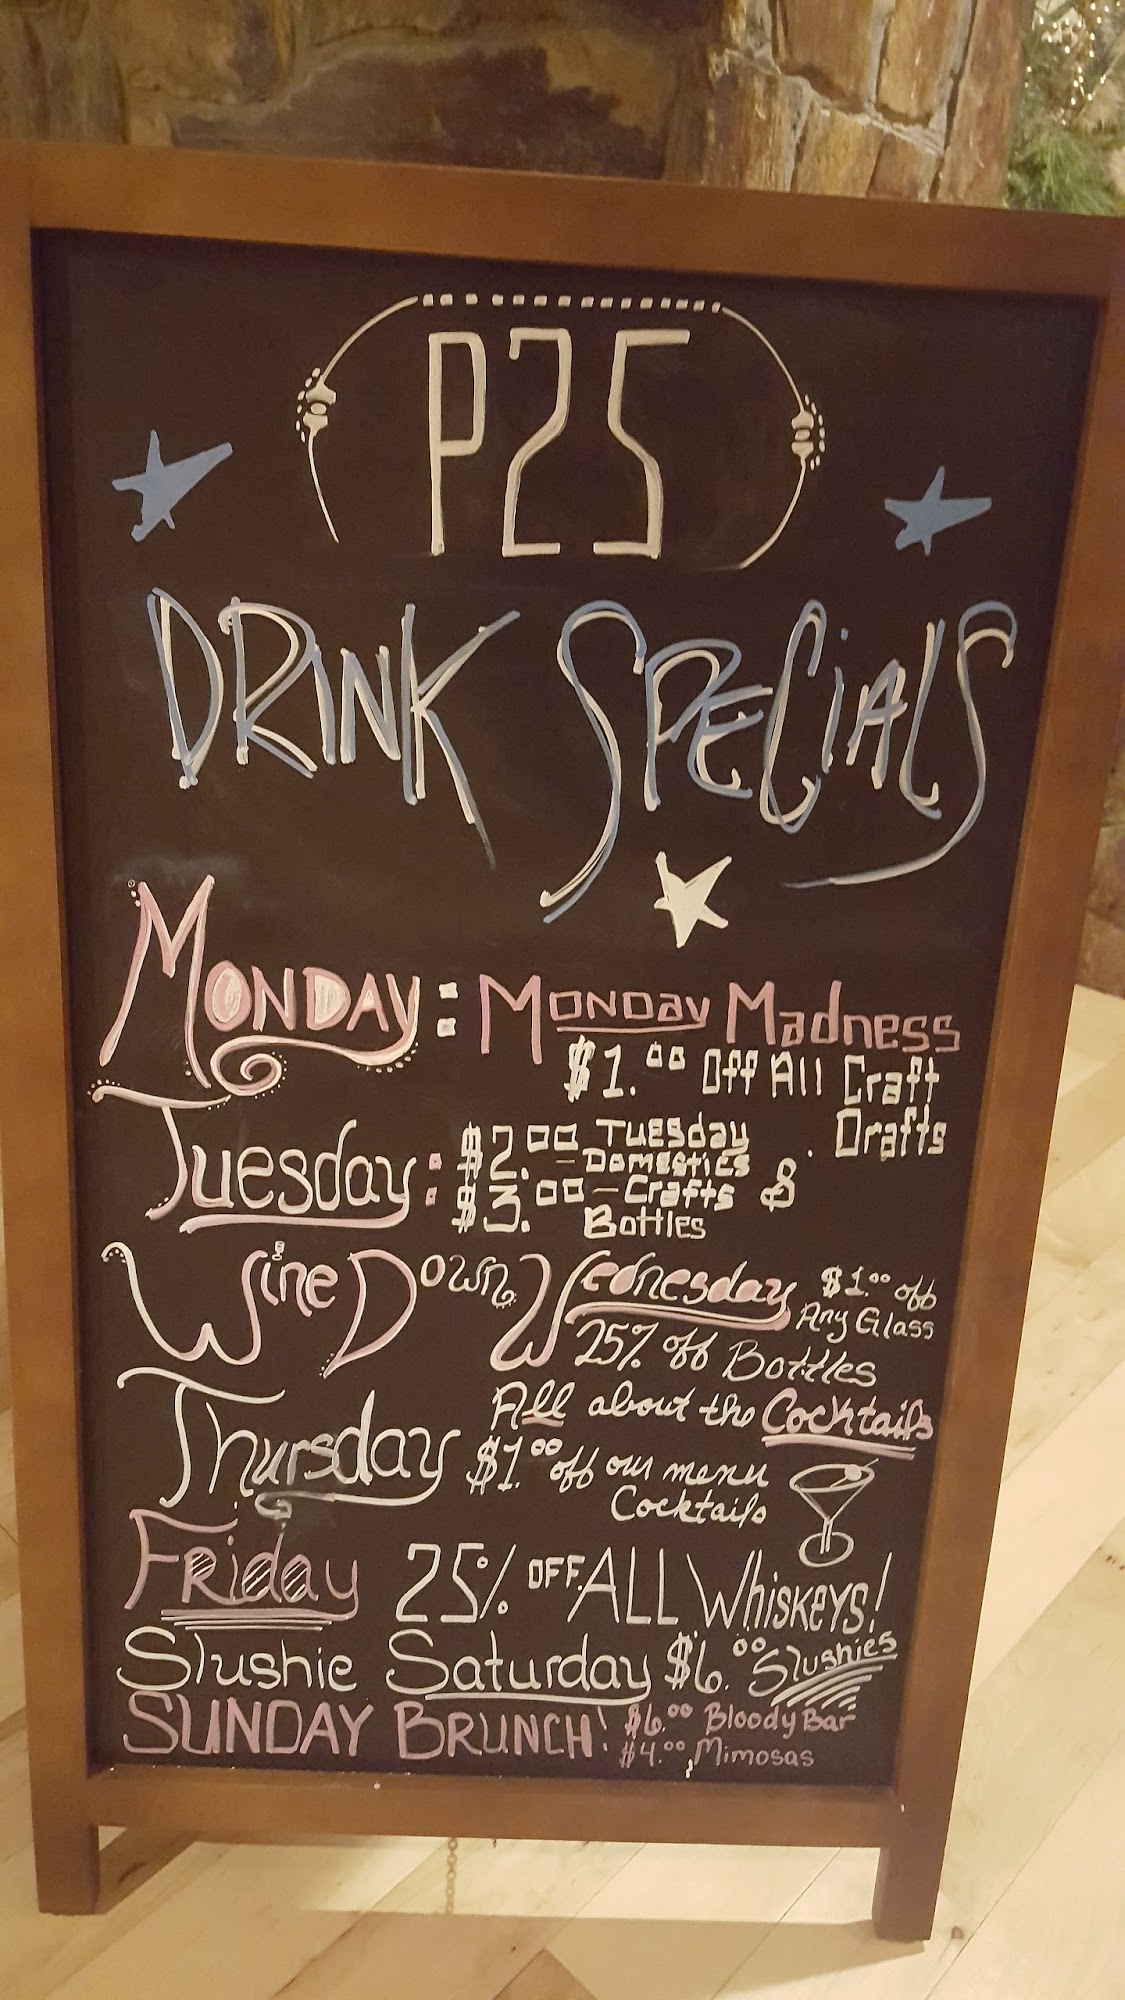 P25
DRINK SPECIALS
MONDAY: MONDAY Madness
$1.00 Off All Craft
Drafts
Tuesday: $2.00 - Tuesday
Domestics &
$3.00 - Crafts
Bottles
Wine Down Wednesday $1.00 off
Any Glass
25% off Bottles
Thursday All about the Cocktails
$1.00 off our menu
Cocktails
FRiday 25% OFF ALL Whiskeys!
Slushie Saturday $6.00 Slushies
SUNDAY BRUNCH! $6.00 Bloody Bar
$4.00, Mimosas